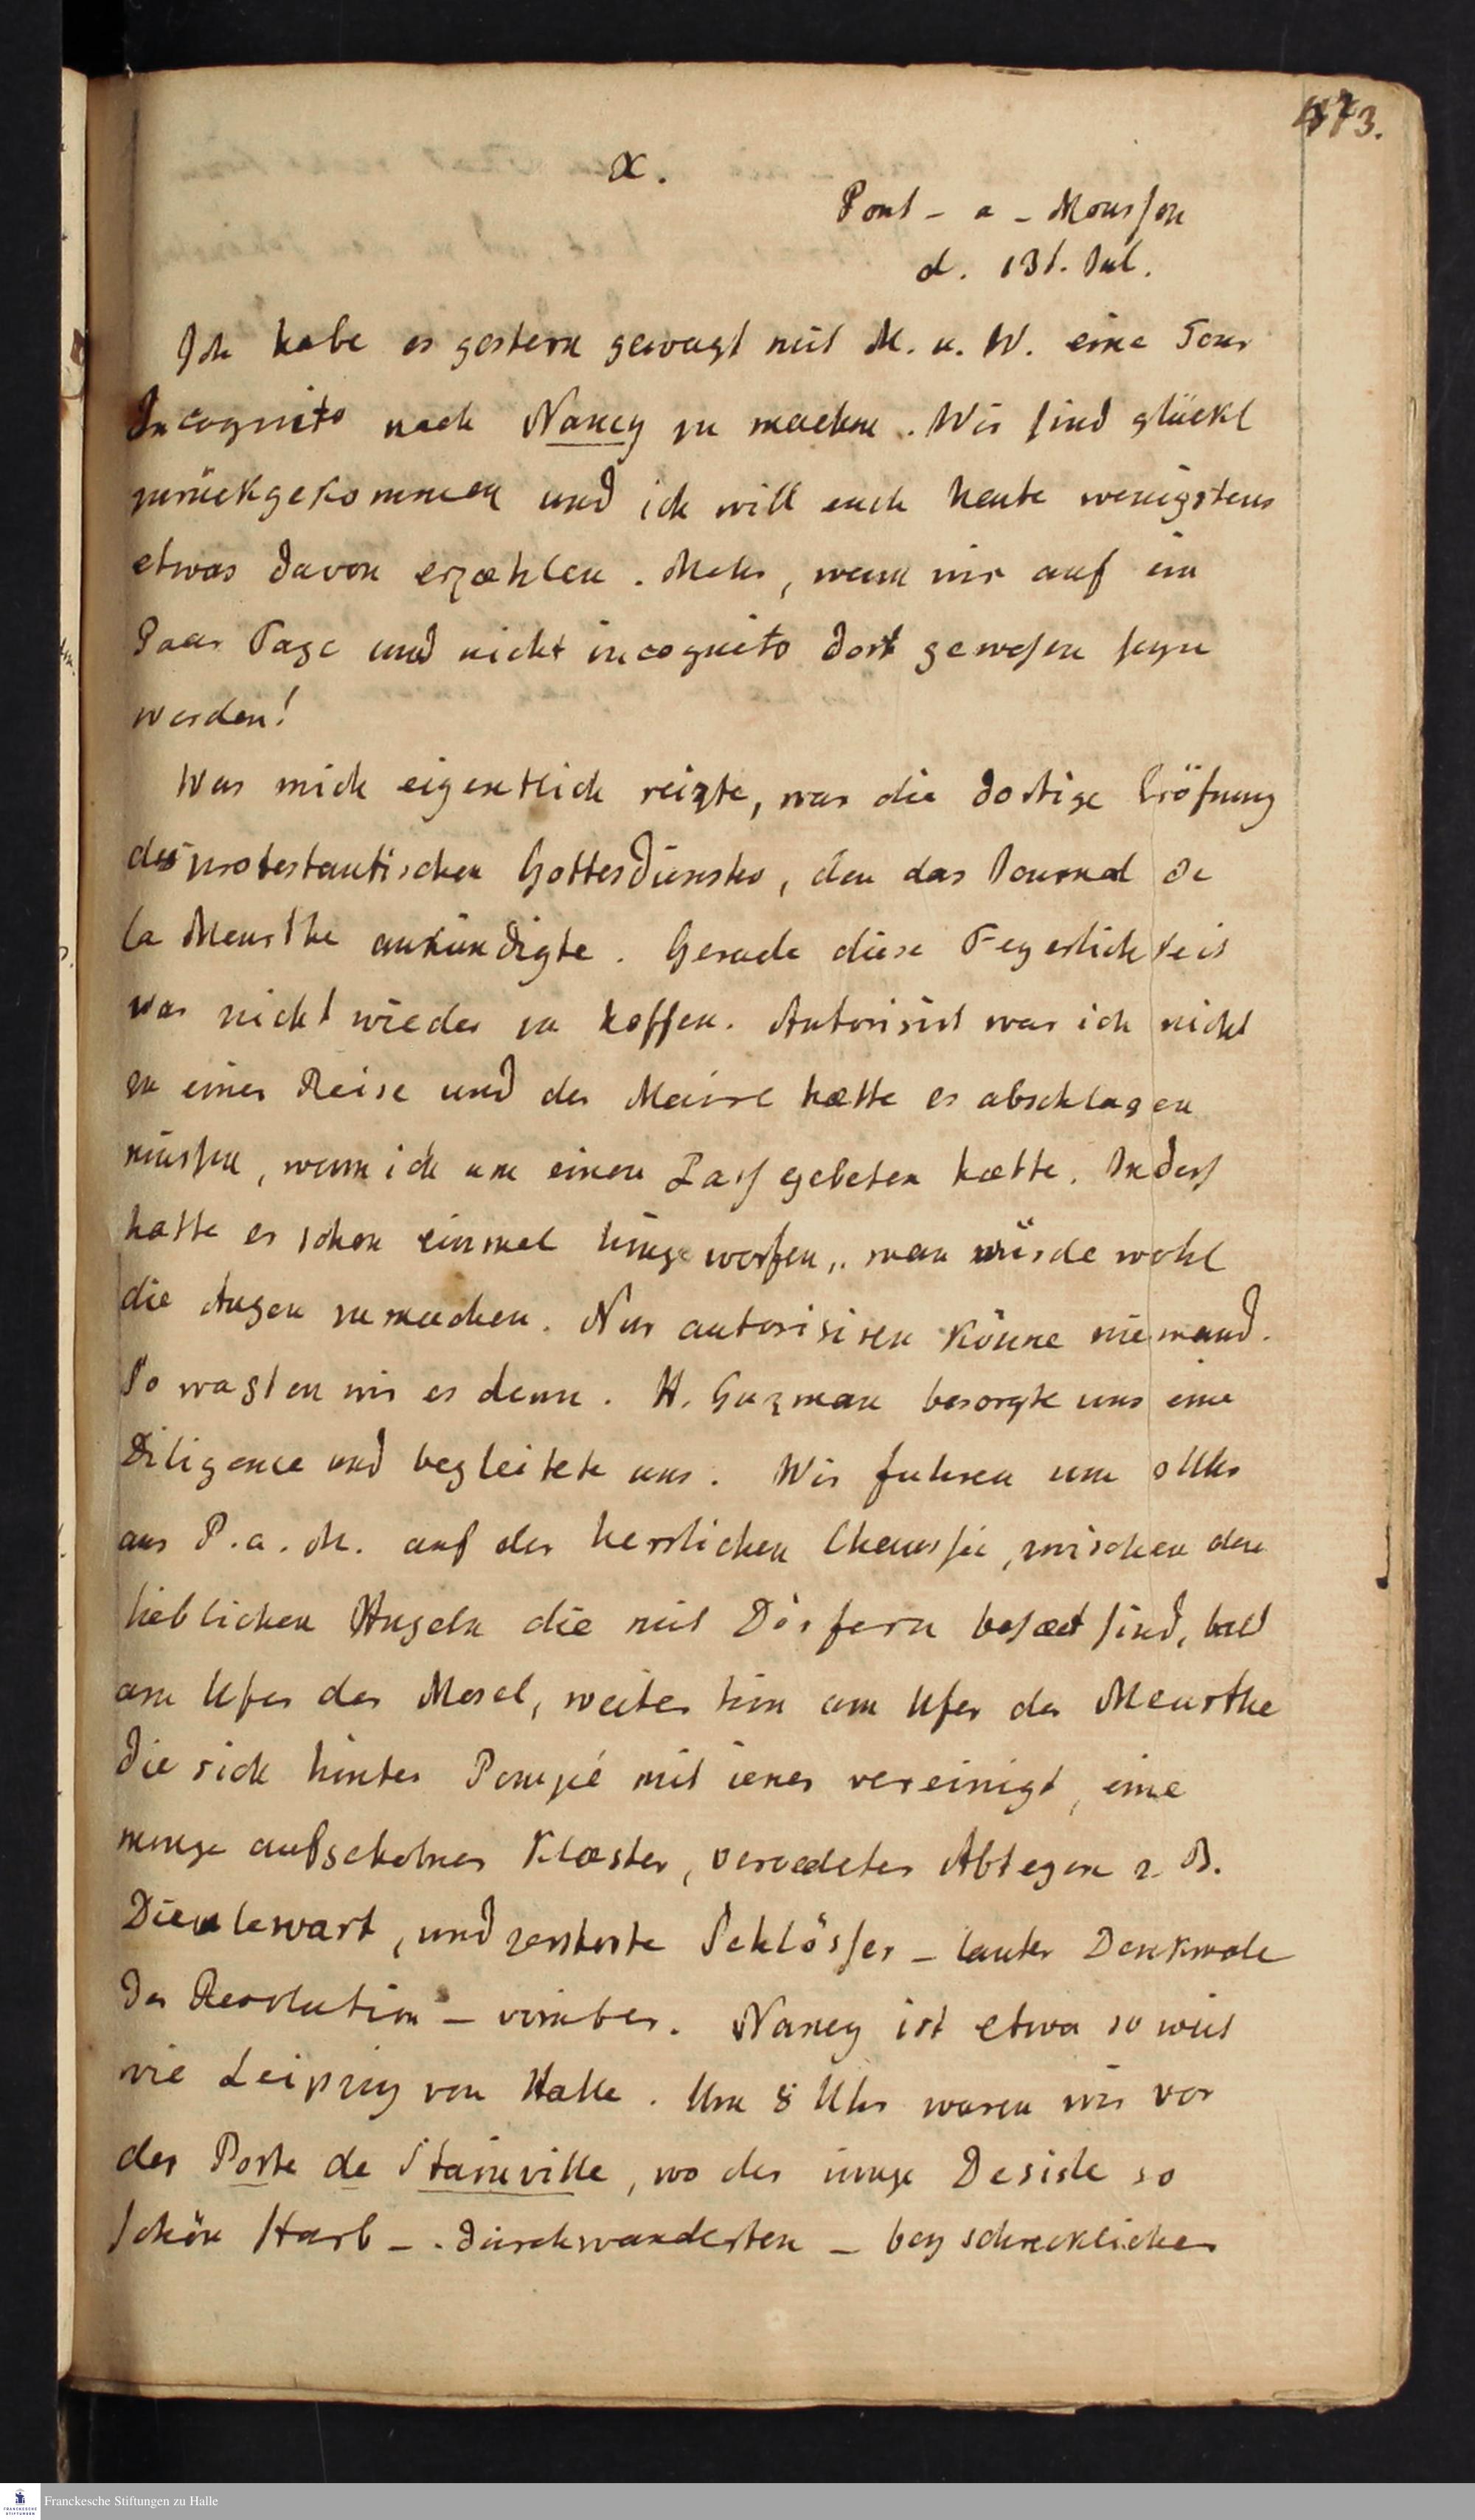 473.
X.
Pont - a - Mousson
d. 13t. Jul.
Ich habe es gestern gewagt mit M. u. W. eine Tour
Incognito nach Nancy zu machen. Wir sind glückl
zurückgekommen und ich will euch heute wenigstens
etwas davon erzæhlen. Mehr, wenn wir auf ein
Paar Tage und nicht incognito dort gewesen seyn
werden!
Was mich eigentlich reizte, war die dortige Eröfnung
des protestantischen Gottesdienstes, den das Journal de
la Meurthe ankündigte. Gerade diese Feyerlichkeit
war nicht wieder zu hoffen. Autorisirt war ich nicht
zu einer Reise und der Maire hætte es abschlagen
müssen, wenn ich um einen Pass gebeten hætte. Indess
hatte er schon einmal hingeworfen, man würde wohl
die Augen zumachen. Nur autorisiren könne niemand.
So wagten wir es denn. H. Guzman besorgte uns eine
Diligence und begleitete uns. Wir fuhren um Uhr
aus P. a. M. auf der herrlichen Chaussée, zwischen den
lieblichen Hugeln die mit Dörfern besæet sind, bald
am Ufer der Mosel, weiter hin am Ufer der Meurthe
die sich hinter Pompé mit iener vereinigt, eine
menge aufgehobner Klœster, verœdeter Abteyen z. B.
Dieulewart, und zerstorte Schlösser - lauter Denkmale
der Revolution - vorüber. Nancy ist etwa so weit
wie Leipzig von Halle. Um 8 Uhr waren wir vor
der Porte de Stainville, wo der iunge Desisle so
schön starb - . Durchwanderten - bey schrecklicher
Franckesche Stiftungen zu Halle